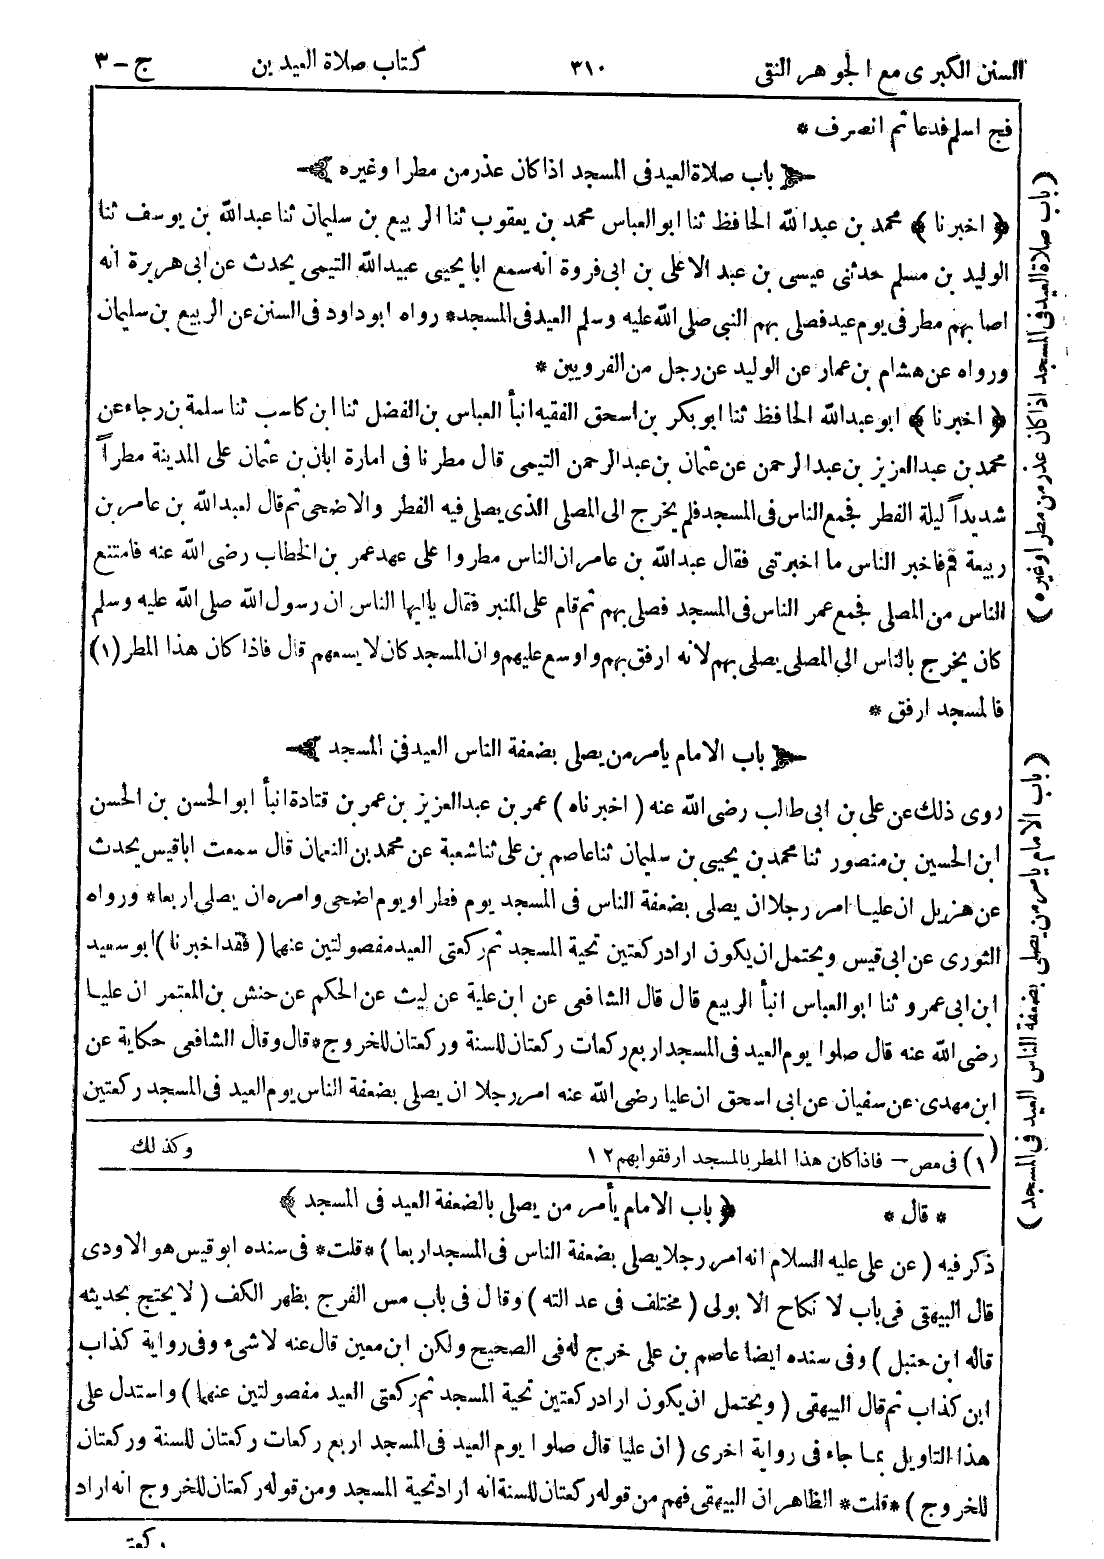 السنن الكبرى مع الجوهر النقى ٣١٠ كتاب صلاة العيدين ج-٣
فج اسلم فدعا ثم انصرف *
﴿ باب صلاة العيد فى المسجد اذا كان عذر من مطر اوغيره ﴾
﴿ اخبرنا ﴾ محمد بن عبدالله الحافظ ثنا ابو العباس محمد بن يعقوب ثنا الربيع بن سليمان ثنا عبدالله بن يوسف ثنا
الوليد بن مسلم حدثنى عيسى بن عبد الاعلى بن ابى فروة انه سمع ابا يحيى عبيدالله التيمى يحدث عن ابى هريرة انه
اصابهم مطر فى يوم عيد فصلى بهم النبى صلى الله عليه وسلم العيد فى المسجد * رواه ابوداود فى السنن عن الربيع بن سليمان
ورواه عن هشام بن عمار عن الوليد عن رجل من الفرويين *
﴿ اخبرنا ﴾ ابو عبدالله الحافظ ثنا ابوبكر بن اسحق الفقيه انبأ العباس بن الفضل ثنا ابن كاسب ثنا سلمة بن رجاء عن
محمد بن عبدالعزيز بن عبدالرحمن عن عثمان بن عبدالرحمن التيمى قال مطرنا فى امارة ابان بن عثمان على المدينة مطراً
شديداً ليلة الفطر فجمع الناس فى المسجد فلم يخرج الى المصلى الذى يصلى فيه الفطر والاضحى ثم قال لعبدالله بن عامر بن
ربيعة قم فاخبر الناس ما اخبرتنى فقال عبدالله بن عامر ان الناس مطروا على عهد عمر بن الخطاب رضى الله عنه فامتنع
الناس من المصلى فجمع عمر الناس فى المسجد فصلى بهم ثم قام على المنبر فقال ياايها الناس ان رسول الله صلى الله عليه وسلم
كان يخرج بالناس الى المصلى يصلى بهم لانه ارفق بهم واوسع عليهم وان المسجد كان لا يسعهم قال فاذا كان هذا المطر (١)
فالمسجد ارفق *
﴿ باب الامام يأمر من يصلى بضعفة الناس العيد فى المسجد ﴾
روى ذلك عن على بن ابى طالب رضى الله عنه ( اخبرناه ) عمر بن عبدالعزيز بن عمر بن قتادة انبأ ابو الحسن بن الحسن
ابن الحسين بن منصور ثنا محمد بن يحيى بن سليمان ثنا عاصم بن على ثنا شعبة عن محمد بن النعمان قال سمعت اباقيس يحدث
عن هزيل ان عليا امر رجلا ان يصلى بضعفة الناس فى المسجد يوم فطر او يوم اضحى وامره ان يصلى اربعا * ورواه
الثورى عن ابى قيس ويحتمل ان يكون اراد ركعتين تحية المسجد ثم ركعتى العيد مفصولتين عنهما ( فقد اخبرنا ) ابو سعيد
ابن ابى عمرو ثنا ابو العباس انبأ الربيع قال قال الشافعى عن ابن علية عن ليث عن الحكم عن حنش بن المعتمر ان عليا
رضى الله عنه قال صلوا يوم العيد فى المسجد اربع ركعات ركعتان للسنة وركعتان للخروج * قال وقال الشافعى حكاية عن
ابن مهدى عن سفيان عن ابى اسحق ان عليا رضى الله عنه امر رجلا ان يصلى بضعفة الناس يوم العيد فى المسجد ركعتين
وكذلك
(١) فى مص – فاذا كان هذا المطر بالمسجد ارفقوا بهم ١٢
* قال * ﴿ باب الامام يأمر من يصلى بالضعفة العيد فى المسجد ﴾
ذكر فيه ( عن على عليه السلام انه امر رجلا يصلى بضعفة الناس فى المسجد اربعا ) * قلت * فى سنده ابو قيس هو الاودى
قال البيهقى فى باب لا نكاح الا بولى ( مختلف فى عدالته ) وقال فى باب مس الفرج بظهر الكف ( لا يحتج بحديثه
قاله ابن حنبل ) وفى سنده ايضا عاصم بن على خرج له فى الصحيح ولكن ابن معين قال عنه لا شىء وفى رواية كذاب
ابن كذاب ثم قال البيهقى ( ويحتمل ان يكون اراد ركعتين تحية المسجد ثم ركعتى العيد مفصولتين عنهما ) واستدل على
هذا التاويل بما جاء فى رواية اخرى ( ان عليا قال صلوا يوم العيد فى المسجد اربع ركعات ركعتان للسنة وركعتان
للخروج ) * قلت * الظاهر ان البيهقى فهم من قوله ركعتان للسنة انه اراد تحية المسجد ومن قوله ركعتان للخروج انه اراد
ركعتى
( باب صلاة العيد فى المسجد اذا كان عذر من مطر اوغيره )
( باب الامام يأمر من يصلى بضعفة الناس العيد فى المسجد )